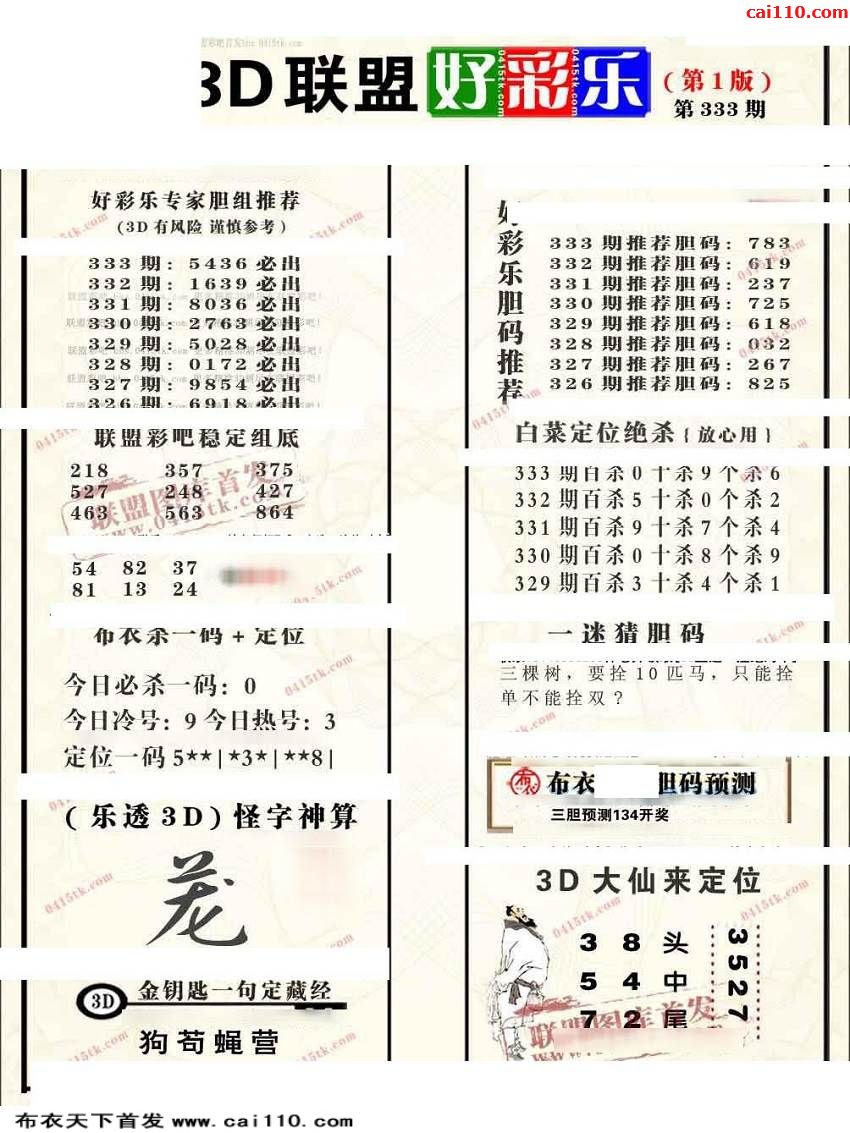 cai110.com
3D联盟好彩乐(第1版)
第333期
好彩乐专家胆组推荐
(3D有风险 谨慎参考)
333期: 5436必出
332期: 1639必出
331期: 8036必出
330期: 2763必出
329期: 5028必出
328期: 0172必出
327期: 9854必出
326期: 6918必出
联盟彩吧稳定组底
218 357 375
527 248 427
463 563 864
54 82 37
81 13 24
布衣杀一码+定位
今日必杀一码: 0
今日冷号: 9 今日热号: 3
定位一码5**|*3*|**8|
(乐透3D)怪字神算
3D 金钥匙一句定藏经
狗苟蝇营
好彩乐胆码推荐
333期推荐胆码: 783
332期推荐胆码: 619
331期推荐胆码: 237
330期推荐胆码: 725
329期推荐胆码: 618
328期推荐胆码: 032
327期推荐胆码: 267
326期推荐胆码: 825
白菜定位绝杀{放心用}
333期百杀0十杀9个杀6
332期百杀5十杀0个杀2
331期百杀9十杀7个杀4
330期百杀0十杀8个杀9
329期百杀3十杀4个杀1
一迷猜胆码
三棵树，要拴10匹马，只能拴
单不能拴双？
布衣 胆码预测
三胆预测134开奖
3D大仙来定位
3 8 头
5 4 中
7 2 尾
3527
联盟图库首发
www.0415tk.com
布衣天下首发 www.cai110.com